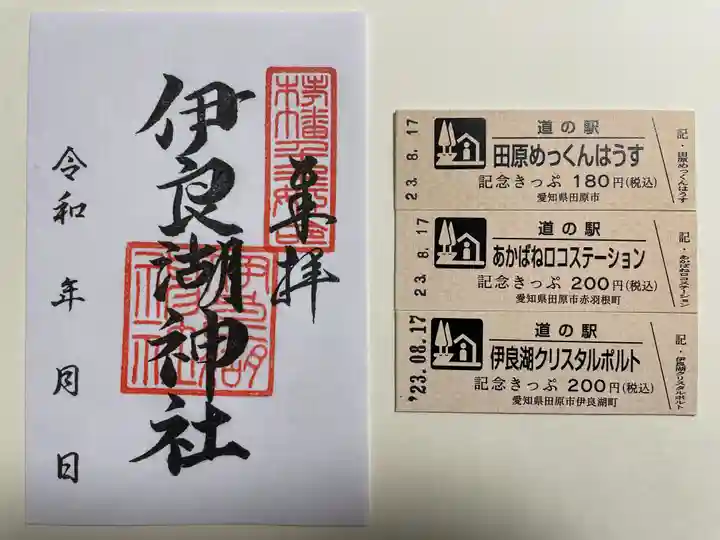 奉拝
伊良湖神社
令和 年 月 日
23.8.17
道の駅
田原めっくんはうす
記念きっぷ 180円(税込)
愛知県田原市
記・田原めっくんはうす
23.8.17
道の駅
あかばねロコステーション
記念きっぷ 200円(税込)
愛知県田原市赤羽根町
記・あかばねロコステーション
'23.08.17
道の駅
伊良湖クリスタルポルト
記念きっぷ 200円(税込)
愛知県田原市伊良湖町
記・伊良湖クリスタルポルト